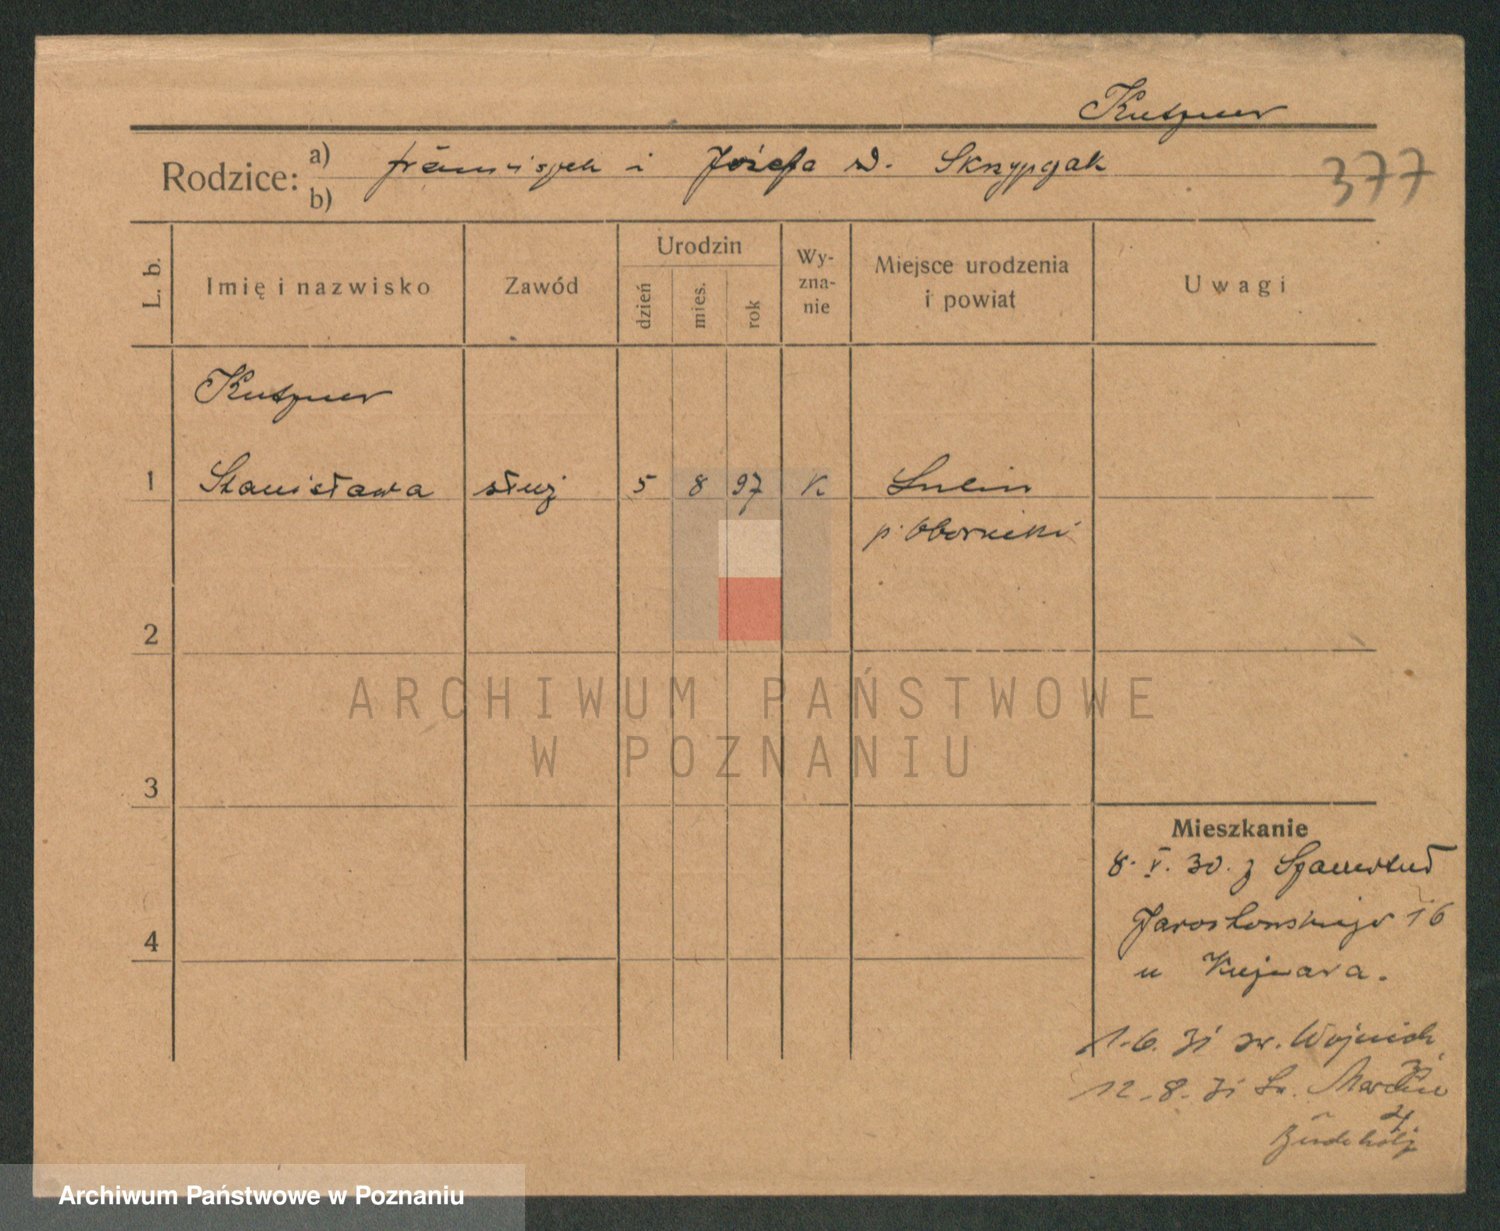 Kutzner
Rodzice: a) Franciszek i Józefa d. Skrzypczak
b)
377
L. b.
Imię i nazwisko
Zawód
Urodzin
dzień
mies.
rok
Wy-
zna-
nie
Miejsce urodzenia
i powiat
Uwagi
Kutzner
1 Stanisława służ 5 8 97 K Lulin
p. Obornicki
2
ARCHIWUM PAŃSTWOWE
W POZNANIU
3
Mieszkanie
8. V. 30. z Szamotuł
Jarosłowskiego 16
u Kujawa.
4
1.6.31 św. Wojciech
12.8.31 Św. Marcin
Archiwum Państwowe w Poznaniu